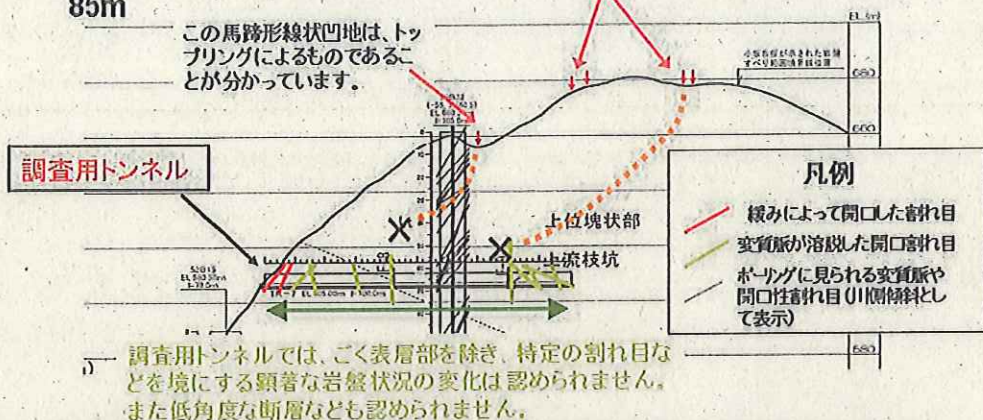 85m
この馬蹄形線状凹地は、トッ
プリングによるものであるこ
とが分かっています。
EL.(m)
680
660
調査用トンネル
凡例
緩みによって開口した割れ目
変質脈が溶脱した開口割れ目
ボーリングに見られる変質脈や
開口性割れ目(川側傾斜とし
て表示)
上位塊状部
上流枝坑
580
調査用トンネルでは、ごく表層部を除き、特定の割れ目な
どを境にする顕著な岩盤状況の変化は認められません。
また低角度な断層なども認められません。